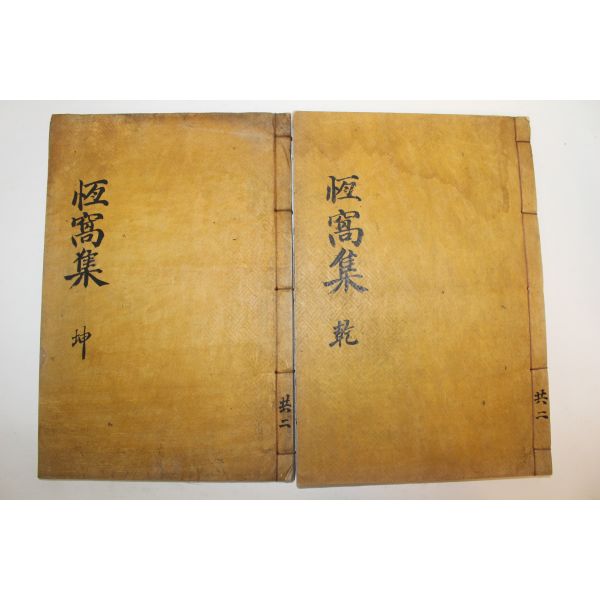 恆窩集 乾
共二
恆窩集 坤
共二